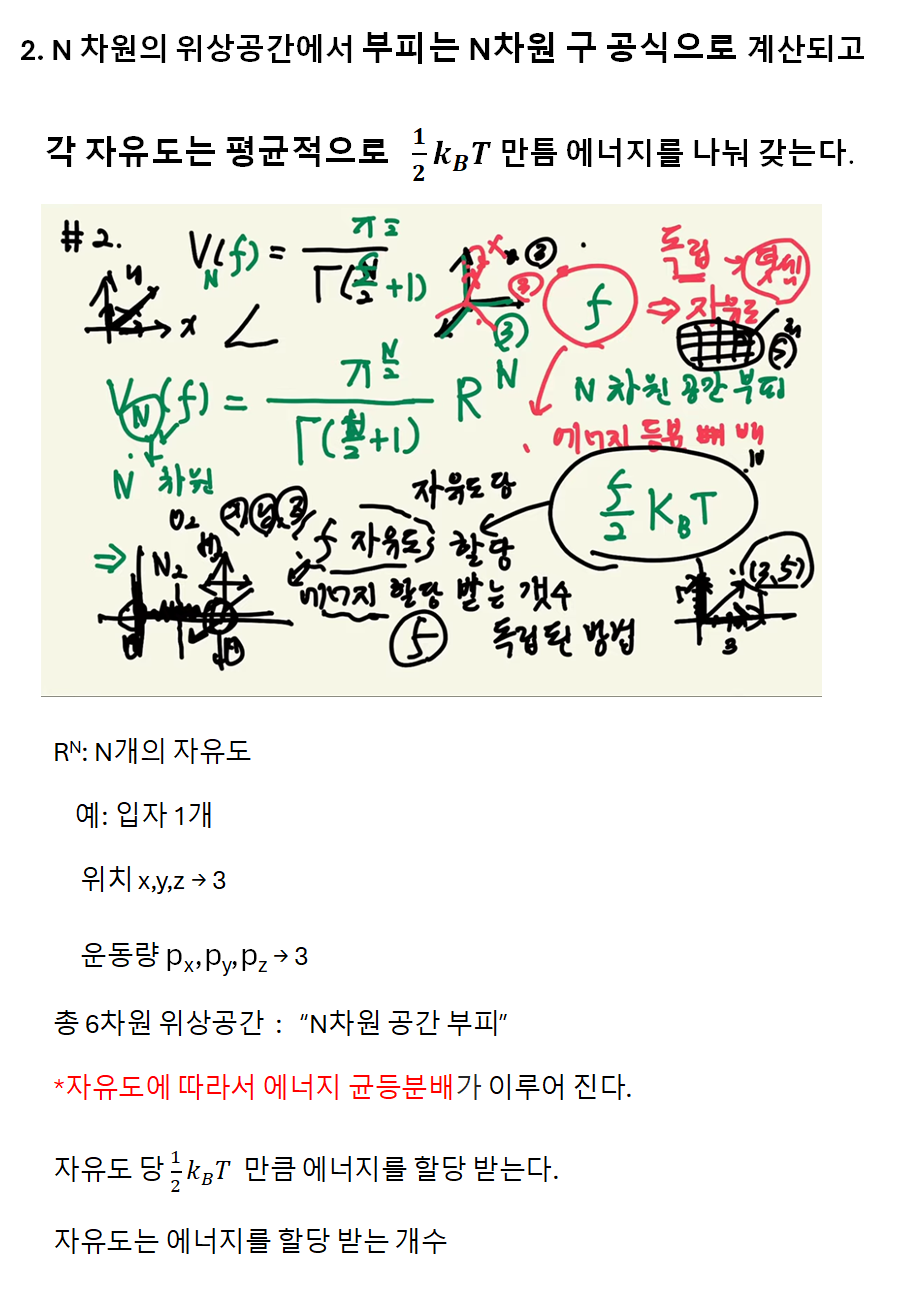 2. N 차원의 위상공간에서 부피는 N차원 구 공식으로 계산되고
각 자유도는 평균적으로 1/2 k_B T 만틈 에너지를 나눠 갖는다.
#2.
V_N(f) = π^(N/2) / Γ(N/2 +1)
y
x
③
③
③
f
독립 → 덧셈
⇒ 자유도
V_N(f) = π^(N/2) / Γ(N/2 +1) R^N
N 차원 공간 부피
N 차원
자유도 당
f/2 K_B T
O₂
f 자유도 할당
⇒ N₂
에너지 할당 받는 갯수
f
독립된 방법
(3,5)
3
R^N: N개의 자유도
예: 입자 1개
위치 x,y,z → 3
운동량 p_x,p_y,p_z → 3
총 6차원 위상공간 : “N차원 공간 부피”
*자유도에 따라서 에너지 균등분배가 이루어 진다.
자유도 당 1/2 k_B T 만큼 에너지를 할당 받는다.
자유도는 에너지를 할당 받는 개수